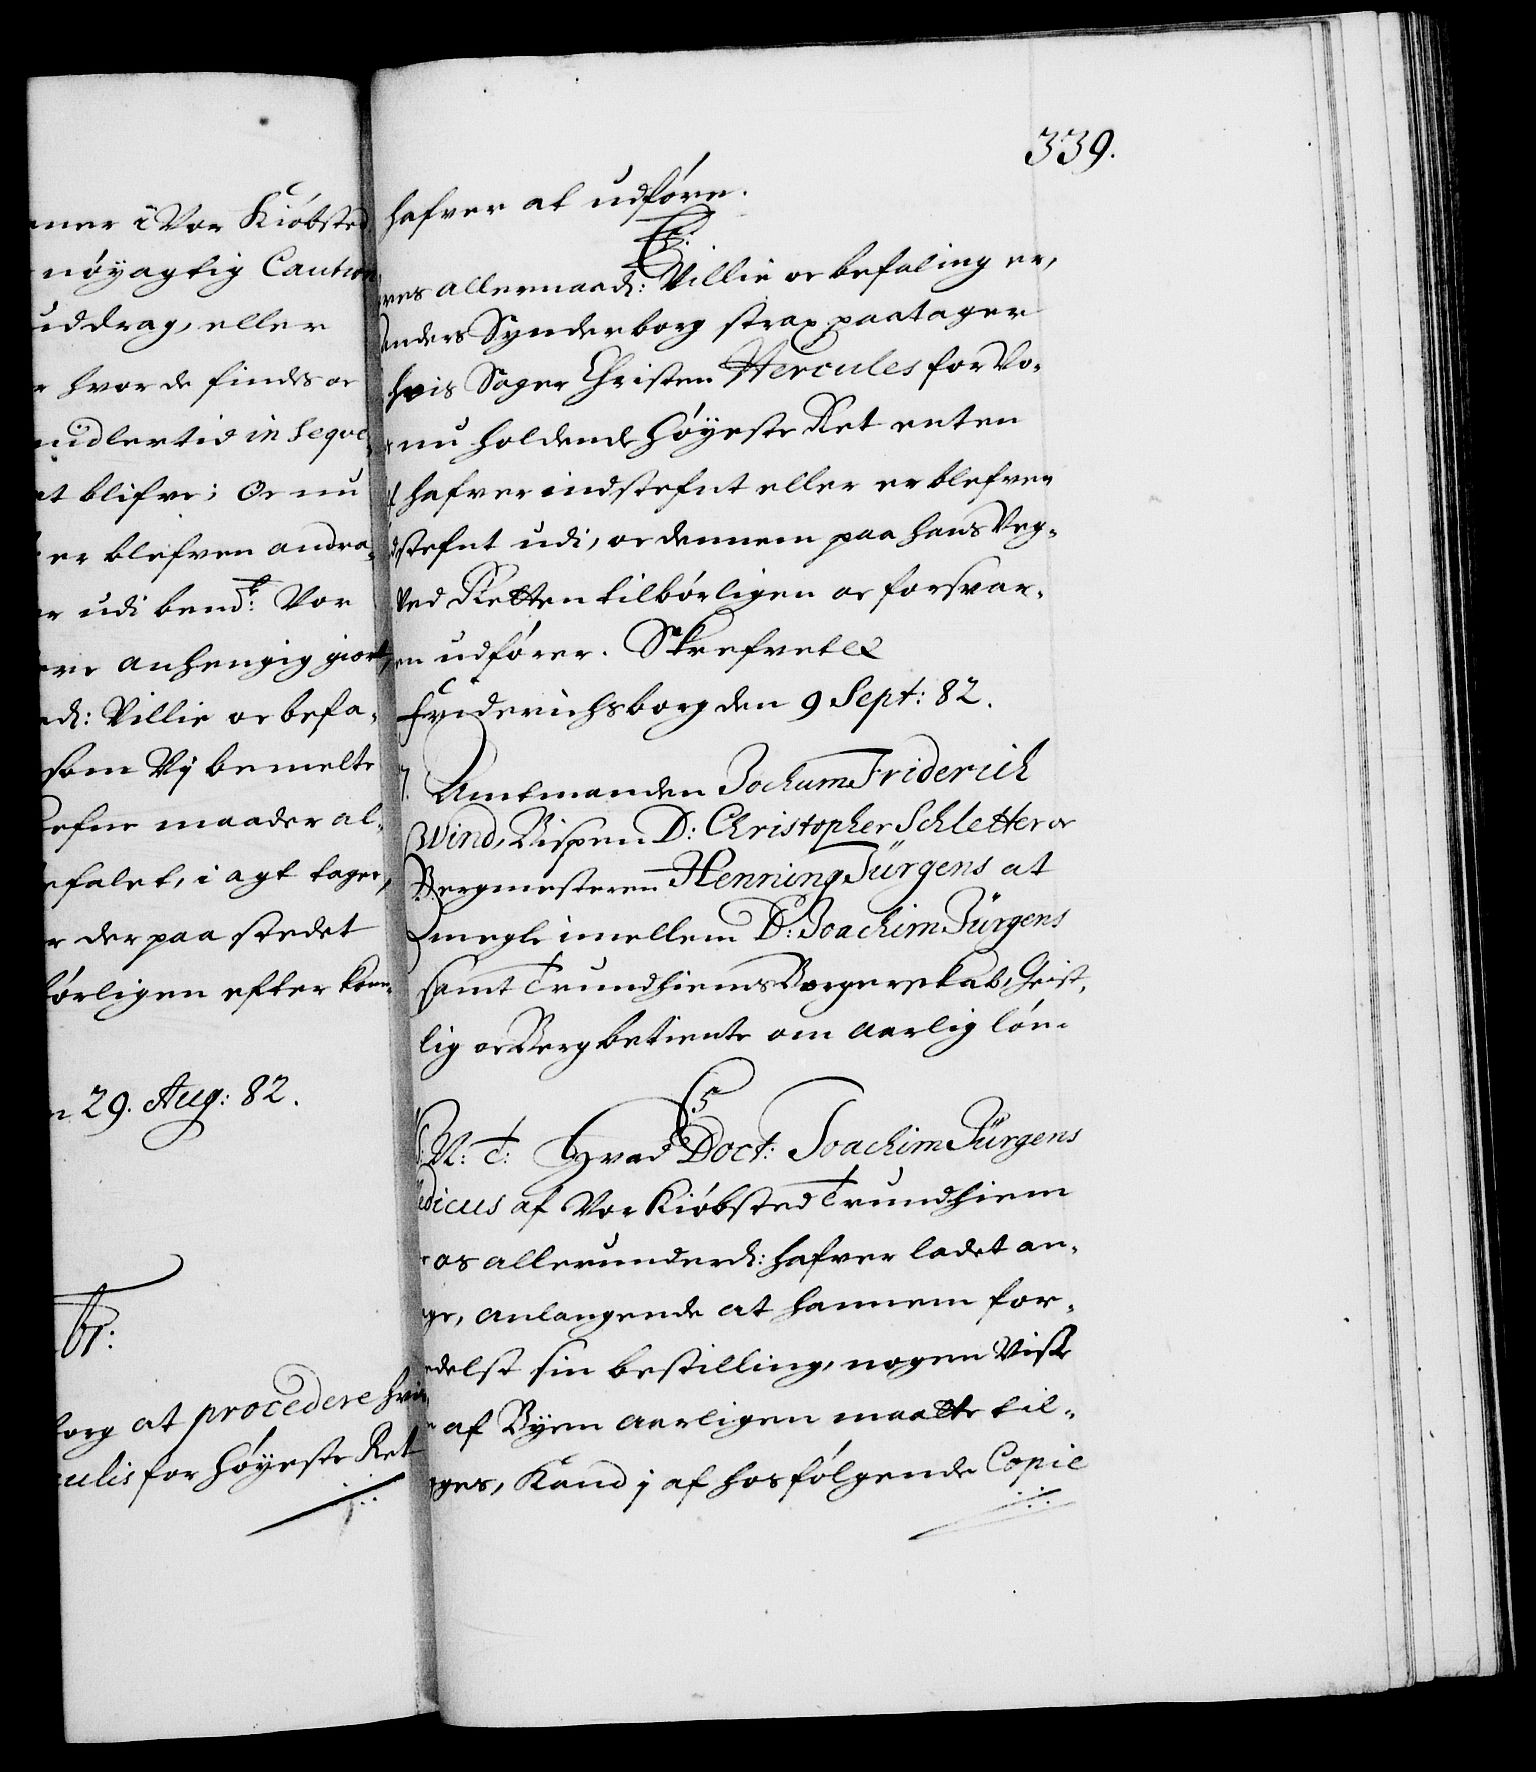 339.
mer i Vor Kiøbsted
nøyagtig Caution
uddrag, eller
hvor de findes oc
midlertid in Seqve-
at blifve; Oc nu
er blefven andra-
udi bend.te Vor
anhengig giort,
Villie oc befa-
som Vj bemelte
maader al-
befalet, i agt tager,
der paa stedet
børligen efterkom-
29. Aug: 82.
borg at procedere hvis
culis for høyeste Ret
hafver at udføre.
C.5.
vores allernaadl: Villie oc befaling er,
Anders Synderborg strax paatager
hvis Sager Christen Hercules for Vo-
nu holdende høyeste Ret enten
hafver indstefnt eller er blefven
indstefnt udi, oc dennem paa hans Veg-
ved Retten tilbørligen oc forsvar-
en udfører. Skrefvet etc
Friderichsborg den 9 Sept: 82.
7. Amtmanden Jochum Friderich
Wind, Bispen D: Christopher Schletter oc
Bergmesteren Henning Jürgens at
megle imellem D: Joachim Jürgens
samt Trundhiems Borgerskab, Geist-
lig oc Bergbetiente om aarlig løn.
C.5
N: T: Hvad Doct: Joachim Jürgens
Medicus af Vor Kiøbsted Trundhiem
os allerunderd: hafver ladet an-
drage, anlangende at hannem for-
medelst sin bestilling, nogen Visse
af Byen aarligen maatte til-
legges, Kand j af hosfølgende Copie